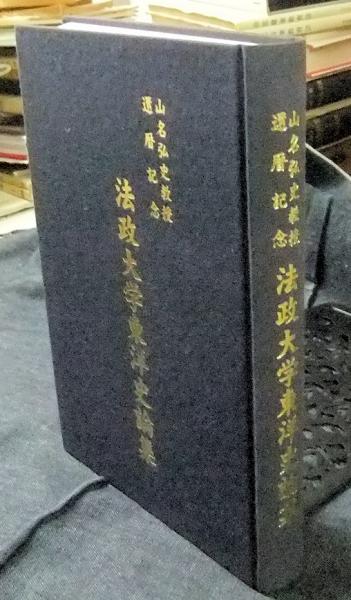 山名弘史教授
還暦記念
法政大学東洋史論集
山名弘史教授
還暦記念
法政大学東洋史論集